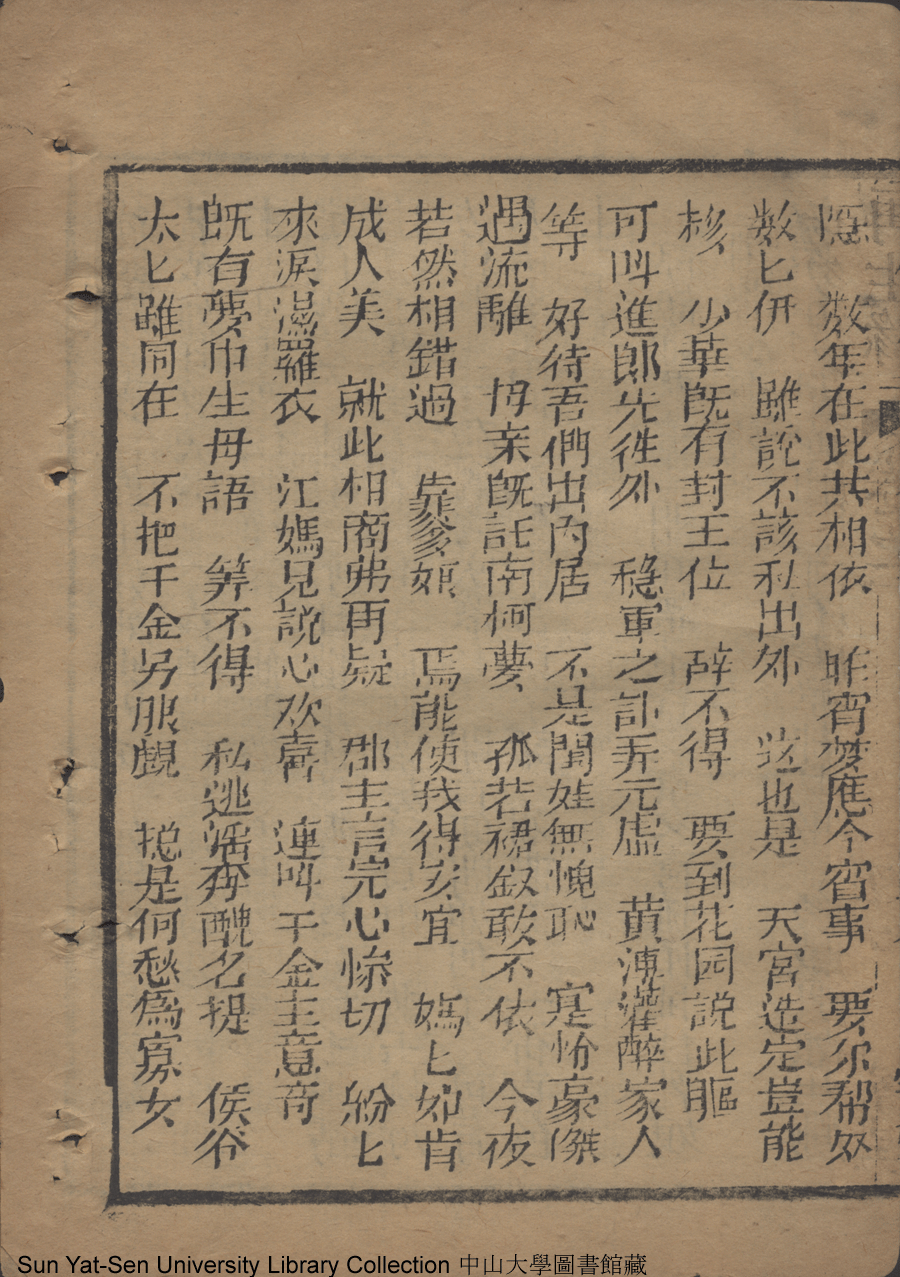 隱 数年在此共相依 昨宵梦應今宵事 要尔帮奴
数匕伊 雖說不該私出外 这也是 天宮造定豈能
移 少華既有封王位 辞不得 要到花园說此軀
可叫進郎先徃外 穏軍之計弄元虛 黄溥灌醉家人
等 好待吾們出内居 不是閨娃無愧恥 寔怜豪傑
遇流離 母亲既託南柯夢 孤若裙釵敢不依 今夜
若然相錯過 靠爹娘 焉能使我得安宜 媽匕如肯
成人美 就此相商弗再疑 郡主言完心惨切 紛匕
來淚濕羅衣 江媽見説心欢喜 連叫千金主意奇
既有夢中生母語 筭不得 私逃滛奔醜名提 侯爷
太匕雖同在 不把千金另眼觑 挩是何愁爲寡女
Sun Yat-Sen University Library Collection 中山大學圖書館藏